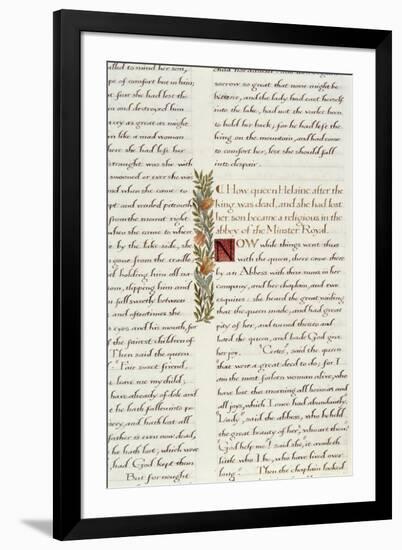 alled to mind her son,
pe of comfort but in him;
t for she had lost the
n and destroyed him
as great as might
in like a mad woman
here she had left her
traught was she with
swooned or ever she was
nd when she came to
ept and wailed piteously
from the mount right
when she came to where
by the lake side, she
gone from the cradle,
el holding him all na
m, clipping him and
n full sweetly between
and oftentimes she
eyes and his mouth, for
f the fairest children of
Then said the queen
" Fair sweet friend,
leave me my child;
have already of dole and
e he hath fallen into
ry, and hath lost all
father is even now dead,
he hath lost, which were
had God kept them
But for nought
sorrow so great that none might be
, and the lady had cast herself
into the lake, had not the varlet been
to hold her back; for he had left the
king on the mountain, and had come
to comfort her, lest she should fall
into despair.
How queen Helaine after the
king was dead, and she had lost
her son became a religious in the
abbey of the Minster Royal.
NOW while things went thus
with the queen, there came there
by an Abbess with three nuns in her
company, and her chaplain, and two
esquires: she heard the great wailing
that the queen made, and had great
pity of her, and turned thereto and
hailed the queen, and bade God give
her joy. "Certes", said the queen
that were a great deal to do; for I
am the most forlorn woman alive, who
have lost this morning all honours and
all joys, which I once had abundantly.
"Lady", said the abbess, who beheld
the great beauty of her, who art thou?
God help me! said she, it availeth
little who I be, who have lived over
long. Then the chaplain looked